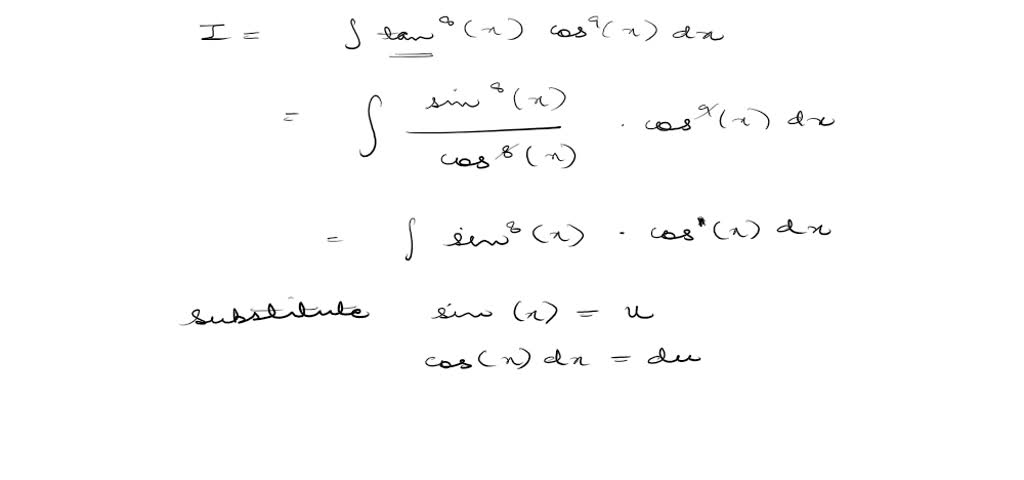 I = ∫ tan⁸(x) cos⁹(x) dx
= ∫ sin⁸(x) / cos⁸(x) · cos⁹(x) dx
= ∫ sin⁸(x) · cos(x) dx
substitute sin(x) = u
cos(x) dx = du